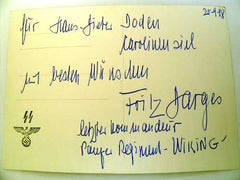 25.9.98
für Hans-Dieter Doden
Carolinensiel
mit besten Wünschen
Fritz Darges
letzter Kommandeur
Panzer Regiment "WIKING"